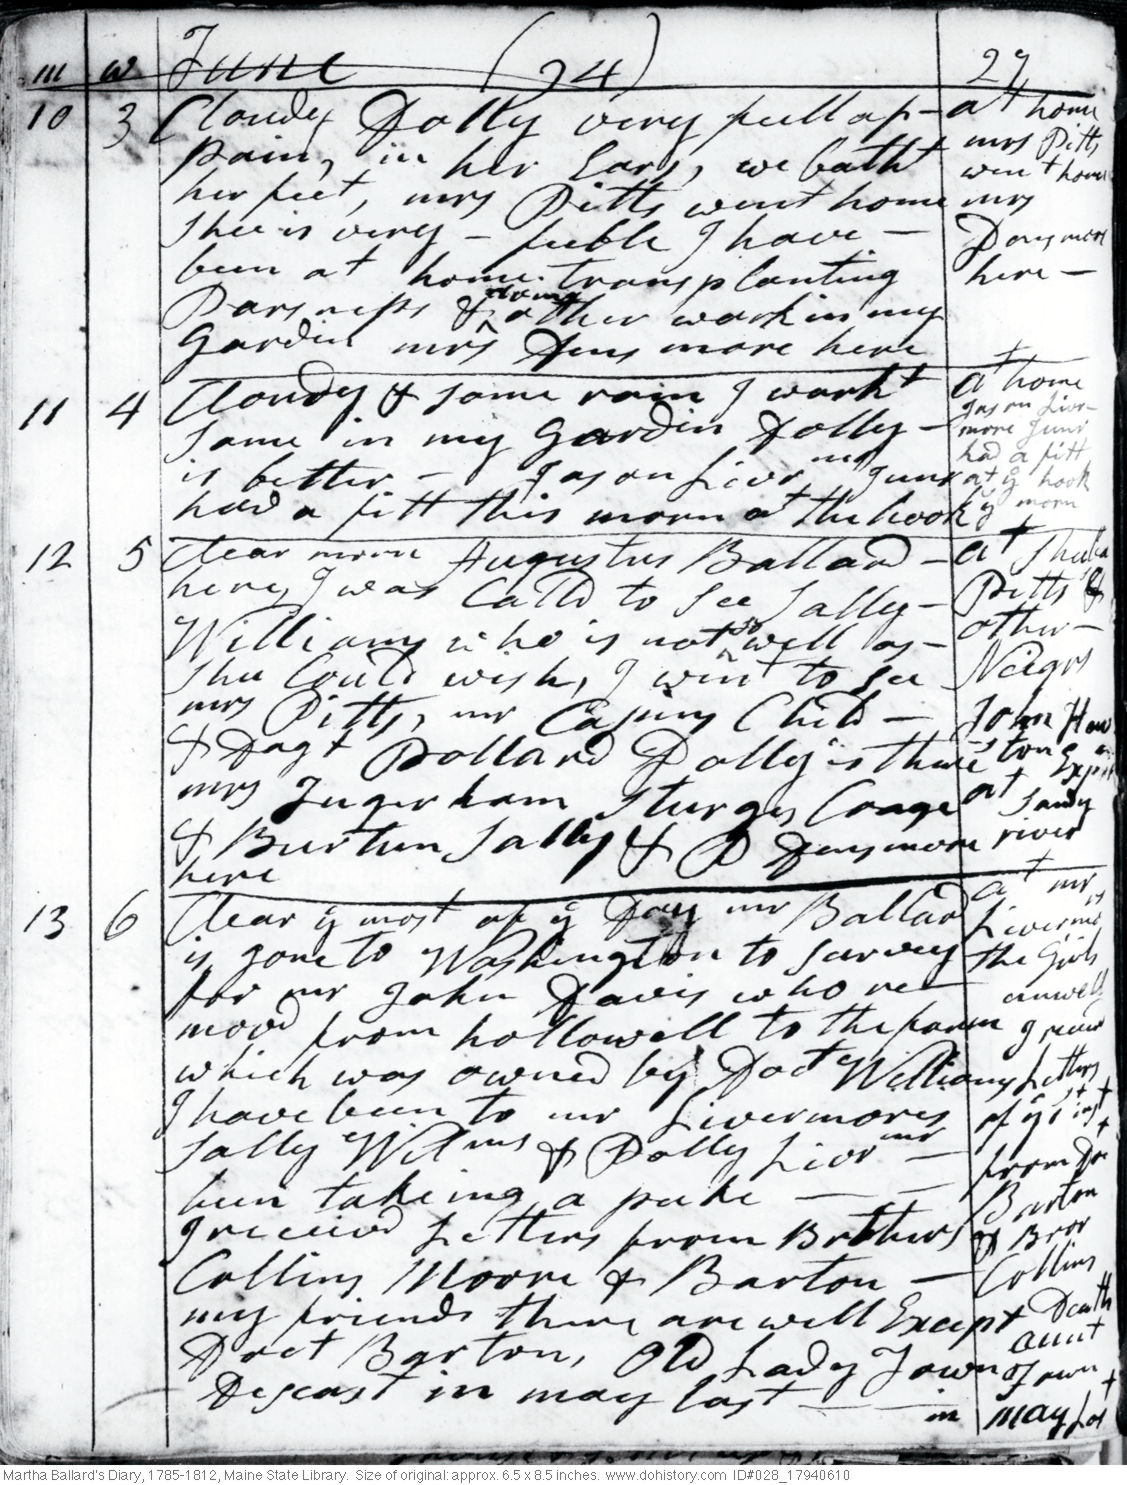 m w June (94) 27
10 3 Cloudy Dolly very full of
pain, in her Ears, we batht
her feet, mrs Pitts went home
Shee is very – feeble I have –
been at home. transplanting
doing
Parsneps & other work in my
Gardin mrs Densmore here
at home
mrs Pitts
went home
mrs
Densmore
here –
11 4 Cloudy & some rain I workt
some in my Gardin Dolly –
is better – Jason Livormor Junr
had a fitt this morn at the hook
at home
Jason Livor–
more Junr
had a fitt
at ye hook
ys morn
12 5 Clear morn Augustus Ballard –
here, I was Calld to See Sally –
so
Williams who is not well as –
Shee Could wish, I went to See
mrs Pitts, mr Cajins Child –
& Dagt Pollard Dolly is there
mrs Ingerham Sturges Coage
& Burtun Sally & P Densmore
here
at Sheba
Pitts &
other –
Neigrs
John How
ston
Expird
at Sandy
river
13 6 Clear ye most of ye Day mr Ballard
is gone to Washington to Survey
for mr John Davis who re–
movd from hollowell to the farm
which was owned by Doct Williams
I have been to mr Livermores
Sally Wilms & Polly Livrmr –
been takeing a puke – –
I received Letters from Brothers
Collins Moore & Barton –
my friends there are well Except
Doct Barton, Old Lady Town
Deseast in may last – – in
at mr
Livermors
the Girls
unwell
I receivd
Letters
of ye 1st inst
from Dr
Barton
& Bror
Collins
Death
aunt
Town
may las
Martha Ballard's Diary, 1785-1812, Maine State Library. Size of original: approx. 6.5 x 8.5 inches. www.dohistory.com ID#028_17940610